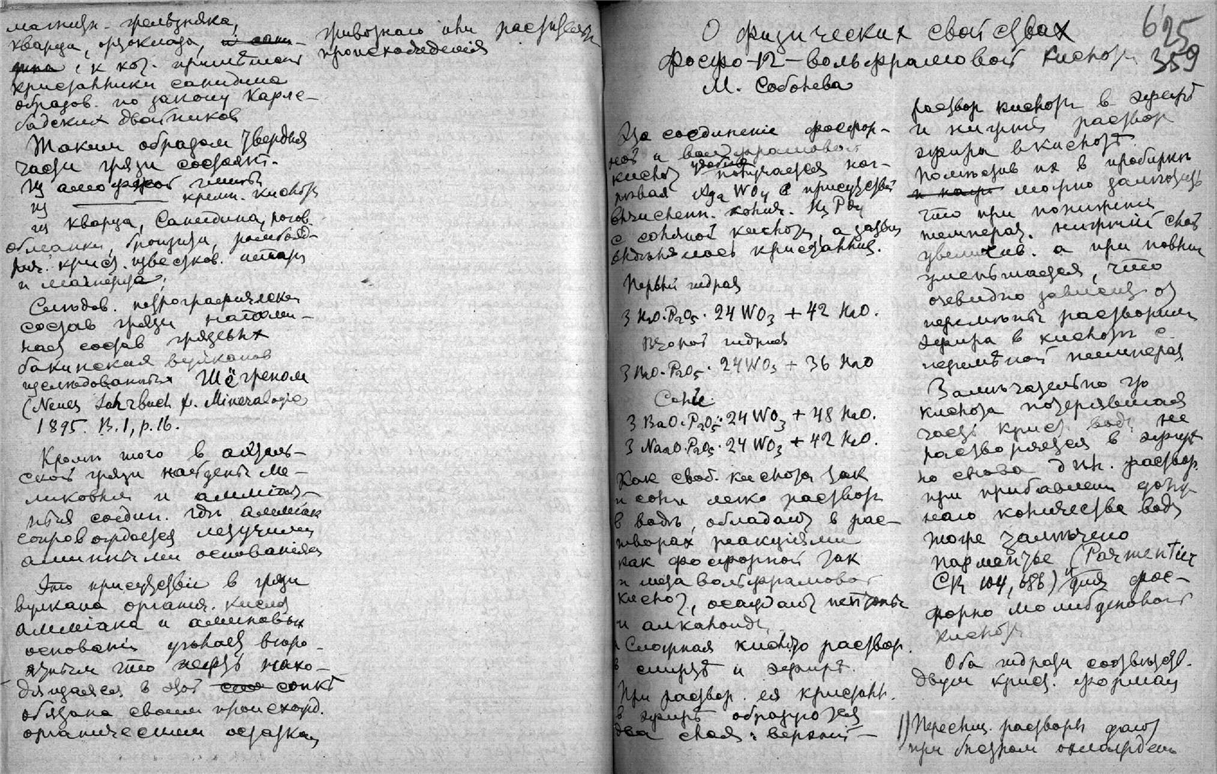 магнитн. железняка,
кварца, ортоклаза,
к кот. примѣшаны
кристаллики санидина
образов. по закону Карлс-
бадских двойников
Таким образом твердая
часть грязи состоит.
из аморфной глины
из кремн. кислоты
из кварца, санидина, рогов.
обманки, бронзита, ромбоэд-
рич. крист. известков. шпата
и магнетита,
Слѣдов. петрографическ
состав грязи напоми-
нает состав грязевых
бакинских вулканов
изслѣдованных Шёгреном
(Neues Jahrbuch f. Mineralogie
1895. B. I, p. 16.
Кромѣ того в
грязи найдены
и амміач-
ныя соедин. гдѣ амміак
сопровождается летучими
аминными основаніями
Это присутствіе в грязи
вулкана органич. кислот
амміака и аминовых
основаній
что нефть нахо-
дящаяся в этой сопкѣ
обязана своим происхожд.
органическим остаткам
животнаго или растительн
происхожденія
625
359
О физических свойствах
фосфо-12-вольфрамовой кислоты
М. Соболева
Это соединеніе фосфор-
ной и вольфрамовой
кислот получается наг-
рѣвая Na2 WO4 в присутствіи
вычисленн. колич. H3 PO4
с соляной кислотой, а затѣм
кристаллиз.
Первый гидрат
3 H2O. P2O5. 24 WO3 + 42 H2O.
Второй гидрат
3 H2O. P2O5. 24 WO3 + 36 H2O
Соли
3 BaO. P2O5. 24 WO3 + 48 H2O.
3 Na2O. P2O5. 24 WO3 + 42 H2O.
Как своб. кислота так
и соли легко раствор
в водѣ, обладают в рас-
творах реакціями
как фосфорной так
и мета вольфрамовой
кислот, осаждают пептоны
и алкалоиды,
Сложная кислота раствор.
в спиртѣ и эфирѣ.
При раствор. ея кристалл.
в эфирѣ образуются
два слоя: верхній —
раствор кислоты в эфирѣ
и нижній раствор
эфира в кислотѣ.
Помѣстив их в пробирки
можно замѣтить
что при пониженіи
температ. нижній слой
увелич. а при повыш
уменьшается, что
очевидно зависит от
перемѣны растворим
эфира в кислотѣ с
перемѣной температ
Замѣчательно что
кислота потерявшая
часть крист. воды не
растворяется в эфирѣ
но снова дѣл. раствор
при прибавленіи
наго количества воды
тоже замѣчено
Парментье (Parmentier
CR 104, 686) для фос-
форно молибденовой
кислоты
Оба гидрата соотвѣтств.
двум крист. формам
1) Пересыщ. растворы дают
при быстром охлажден